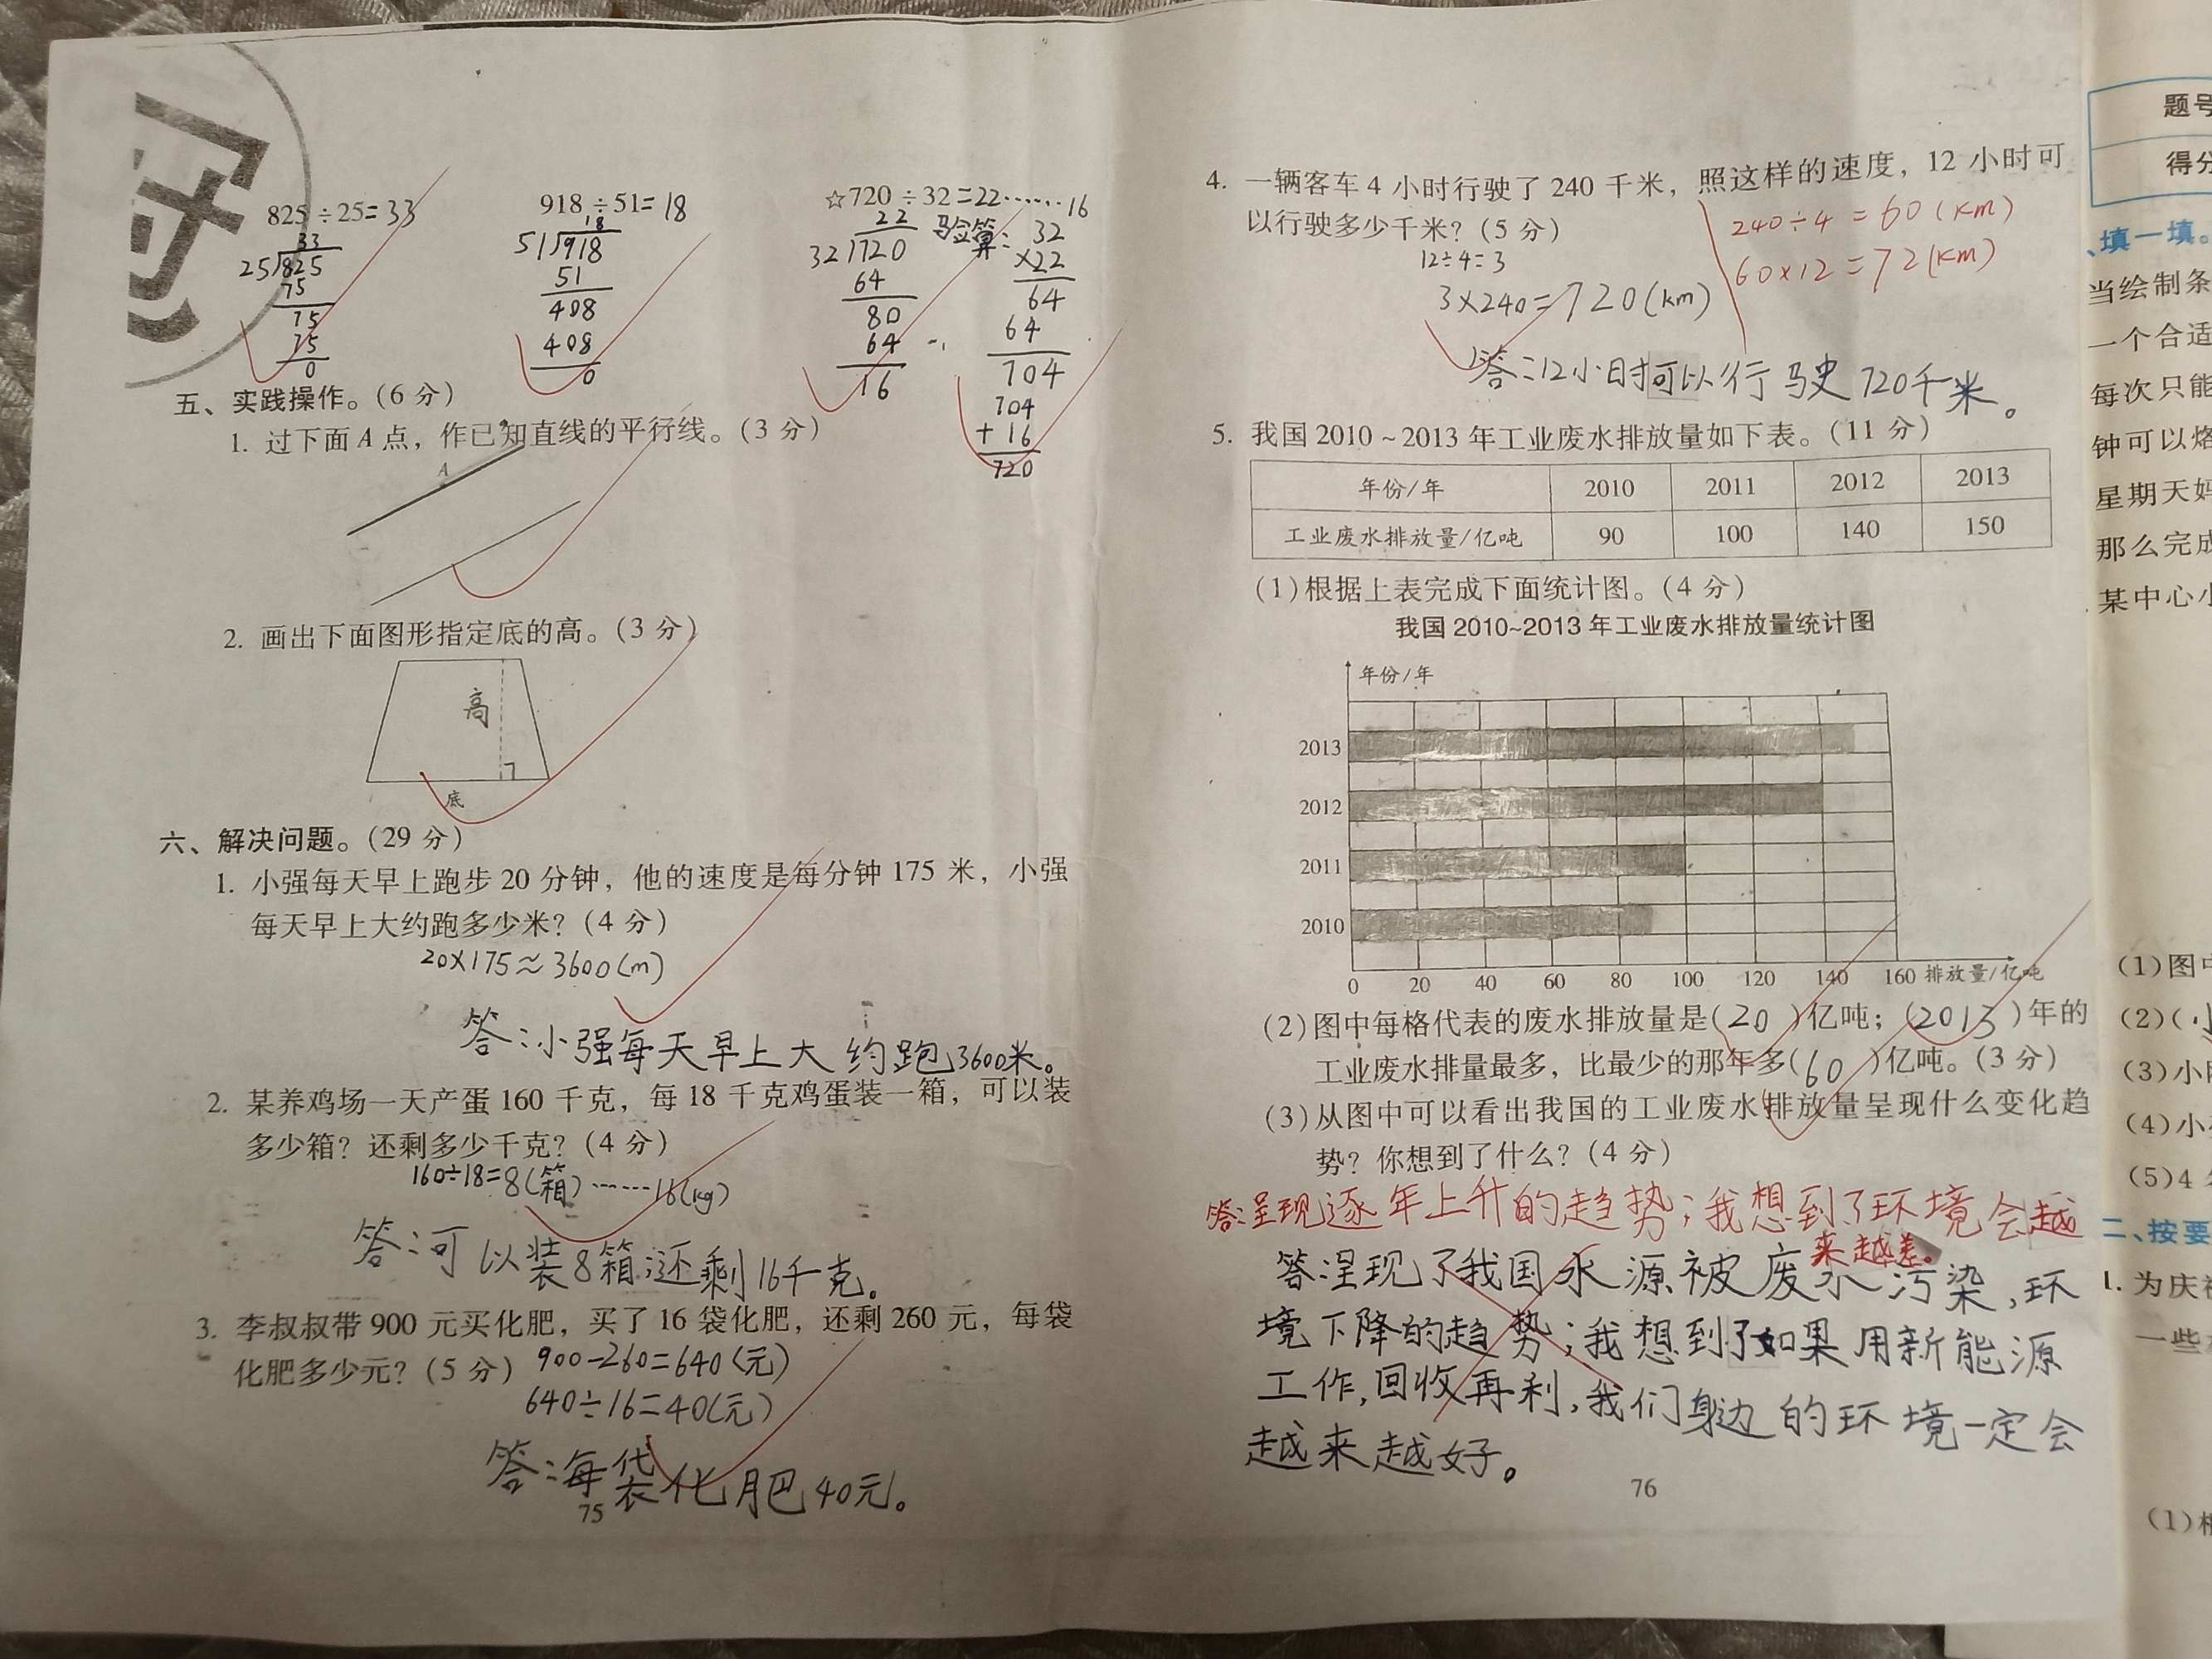 825÷25=33
33
25 825
75
75
75
0
918÷51=18
18
51 918
51
408
408
0
☆720÷32=22……16
22
32 720
64
80
64
16
验算:
32
×22
64
64
704
704
+16
720
五、实践操作。(6 分)
1. 过下面 A 点，作已知直线的平行线。(3 分)
A
2. 画出下面图形指定底的高。(3 分)
高
底
六、解决问题。(29 分)
1. 小强每天早上跑步 20 分钟，他的速度是每分钟 175 米，小强
每天早上大约跑多少米？(4 分)
20×175≈3600(m)
答:小强每天早上大约跑3600米。
2. 某养鸡场一天产蛋 160 千克，每 18 千克鸡蛋装一箱，可以装
多少箱？还剩多少千克？(4 分)
160÷18=8(箱)……16(kg)
答:可以装8箱;还剩16千克。
3. 李叔叔带 900 元买化肥，买了 16 袋化肥，还剩 260 元，每袋
化肥多少元？(5 分)
900-260=640(元)
640÷16=40(元)
答:每袋化肥40元。
75
4. 一辆客车 4 小时行驶了 240 千米，照这样的速度，12 小时可
以行驶多少千米？(5 分)
240÷4=60(km)
60×12=72(km)
12÷4=3
3×240=720(km)
答:12小时可以行驶720千米。
5. 我国 2010~2013 年工业废水排放量如下表。(11 分)
年份/年 2010 2011 2012 2013
工业废水排放量/亿吨 90 100 140 150
(1)根据上表完成下面统计图。(4 分)
我国 2010~2013 年工业废水排放量统计图
年份/年
2013
2012
2011
2010
0 20 40 60 80 100 120 140 160 排放量/亿吨
(2)图中每格代表的废水排放量是(20)亿吨；(2013)年的
工业废水排量最多，比最少的那年多(60)亿吨。(3 分)
(3)从图中可以看出我国的工业废水排放量呈现什么变化趋
势？你想到了什么？(4 分)
答:呈现逐年上升的趋势;我想到了环境会越
来越差。
答呈现了我国水源被废水污染,环
境下降的趋势;我想到了如果用新能源
工作,回收再利,我们身边的环境一定会
越来越好。
76
题号
得分
、填一填。
当绘制条
一个合适
每次只能
钟可以烙
星期天妈
那么完成
某中心小
(1)图中
(2)(小
(3)小
(4)小
(5)4
二、按要
1. 为庆祝
一些
(1)根